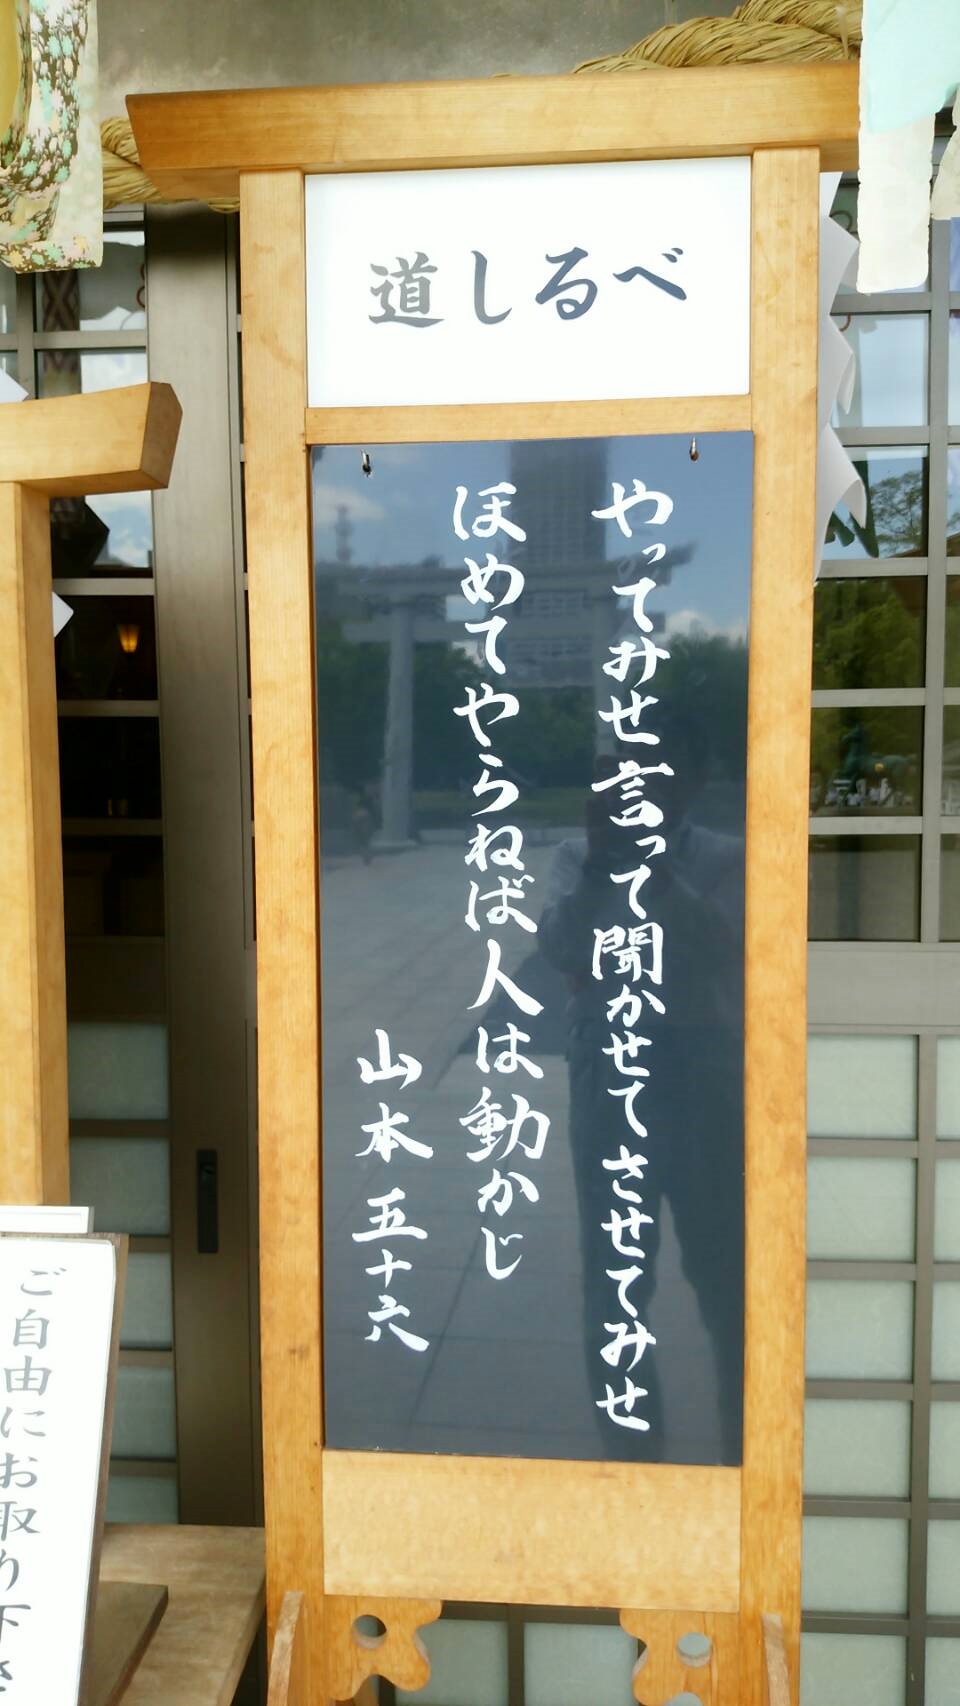 道しるべ
やってみせ言って聞かせてさせてみせ
ほめてやらねば人は動かじ
山本五十六
ご自由にお取り下さ